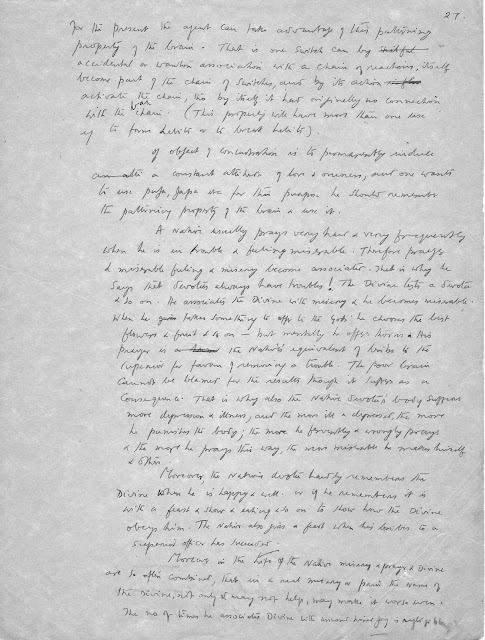 27.
For the present the agent can take advantage of this patterning
property of the brain. That is one switch can by
accidental or wanton association with a chain of reactions, itself
become part of the chain of switches, and by its action
activate the chain, tho by itself it had originally no connection
with the chain. (This property will have more than one use
eg to form habits or to break habits).
If object of concentration is to permanently induce
a constant attitude of love & oneness, and one wants
to use puja, Japa etc for this purpose he should remember
the patterning property of the brain & use it.
A Native usually prays very hard & very frequently
when he is in trouble & feeling miserable. Therefore prayer
& miserable feeling & misery become associated. That is why he
says that devotees always have troubles! The Divine tests a devotee
& so on. He associates the Divine with misery & he becomes miserable.
When he takes something to offer to the Gods he chooses the best
flowers & fruit & so on - but mentally he offers thorns. His
prayer is the Native's equivalent of bribe to the
superior for favour of removing a trouble. The poor brain
cannot be blamed for the results though it suffers as a
consequence. That is why also the Native devotee's body suffers
more depression & illness, and the more ill & depressed, the more
he punishes the body; the more he fervently & wrongly prays
& the more he prays this way, the more miserable he makes himself
& others.
Moreover, the Native devotee hardly remembers the
Divine when he is happy & well. or if he remembers it is
with a feast & show & asking & so on to show how the Divine
obeys him. The Native also gives a feast when his bribes to a
superior officer has succeeded.
Moreover in the life of the Native misery & prayer & Divine
are so often combined, that in a real misery or pain the name of
the Divine, not only it may not help, may make it worse even.
The no of times he associates Divine with unconditional joy is